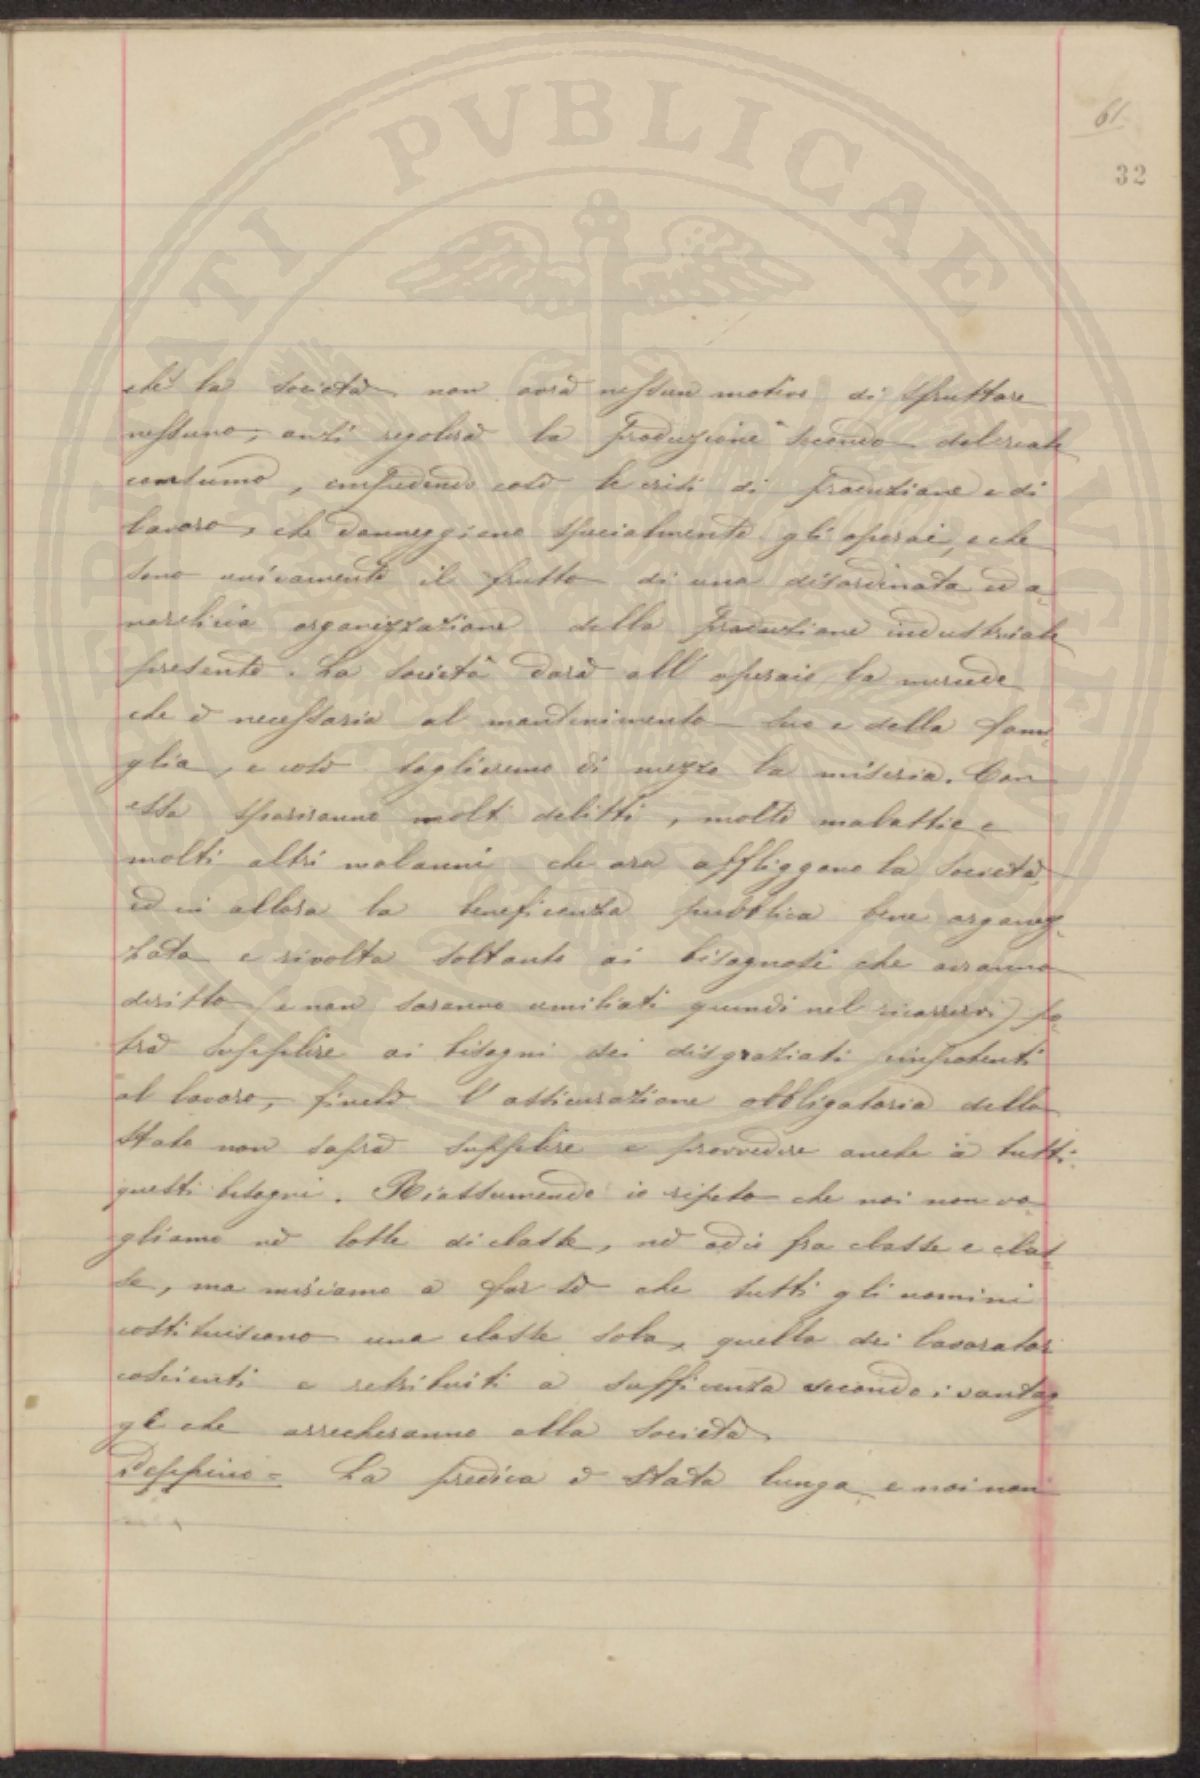 61.
32
chè la società non avrà nessun motivo di sfruttare
nessuno, anzi regolerà la produzione secondo del reale
consumo, impedendo così le crisi di produzione e di
lavoro, che danneggiano specialmente gli operai, e che
sono unicamente il frutto di una disordinata ed a-
narchica organizzazione della produzione industriale
presente. La società darà all'operaio la mercede
che è necessaria al mantenimento suo e della fami-
glia, e così toglieremo di mezzo la miseria. Con
essa spariranno molti delitti, molte malattie e
molti altri malanni che ora affliggono la società,
ed in allora la beneficenza pubblica bene organiz-
zata e rivolta soltanto ai bisognosi che avranno
diritto (e non saranno umiliati quindi nel ricorrervi) po-
trà supplire ai bisogni dei disgraziati impotenti
al lavoro, finchè l'assicurazione obbligatoria dello
Stato non saprà supplire e provvedere anche a tutti
questi bisogni. Riassumendo io ripeto che noi non vo-
gliamo nè lotte di classe, nè odio fra classe e clas-
se, ma miriamo a far sè che tutti gli uomini
costituiscano una classe sola, quella dei lavoratori
coscienti e retribuiti a sufficenza secondo i vantag-
gi che arrecheranno alla società
Peppino = La predica è stata lunga e noi non
PVBLICAE